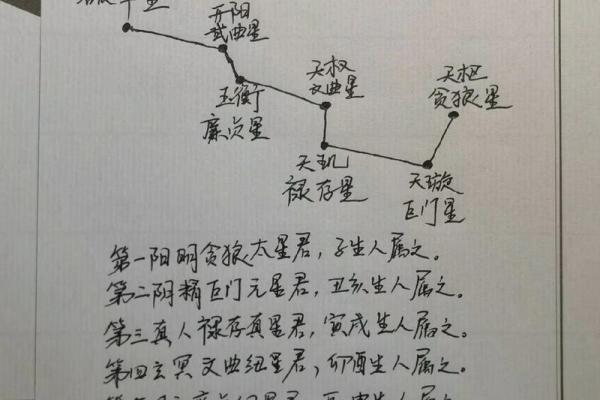 开阳
武曲星
天权
文曲星
天枢
贪狼星
玉衡
廉贞星
天玑
禄存星
天璇
巨门星
第一阳明贪狼太星君，子生人属之。
第二阴精巨门元星君，丑亥生人属之。
第三真人禄存真星君，寅戌生人属之。
第四玄冥文曲纽星君，卯酉生人属之。